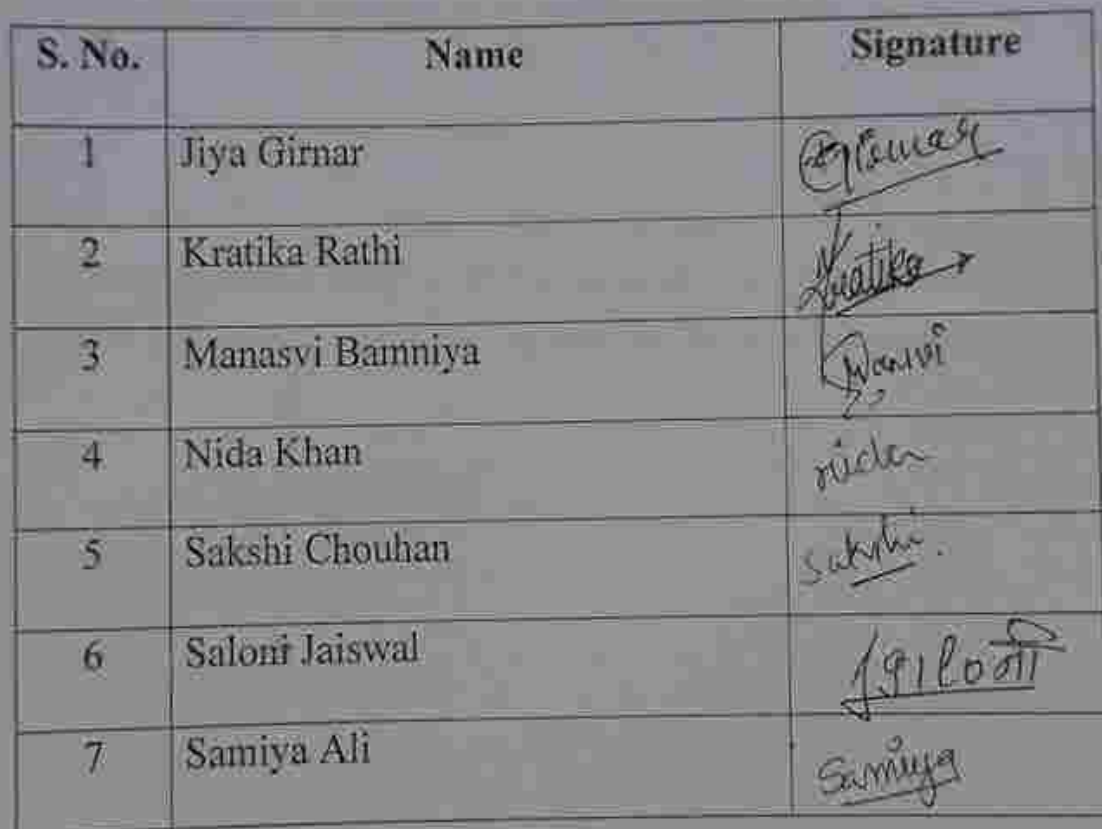 S. No. Name Signature
1 Jiya Girnar
2 Kratika Rathi Kratika
3 Manasvi Bamniya
4 Nida Khan nida
5 Sakshi Chouhan sakshi.
6 Saloni Jaiswal
7 Samiya Ali Samiya